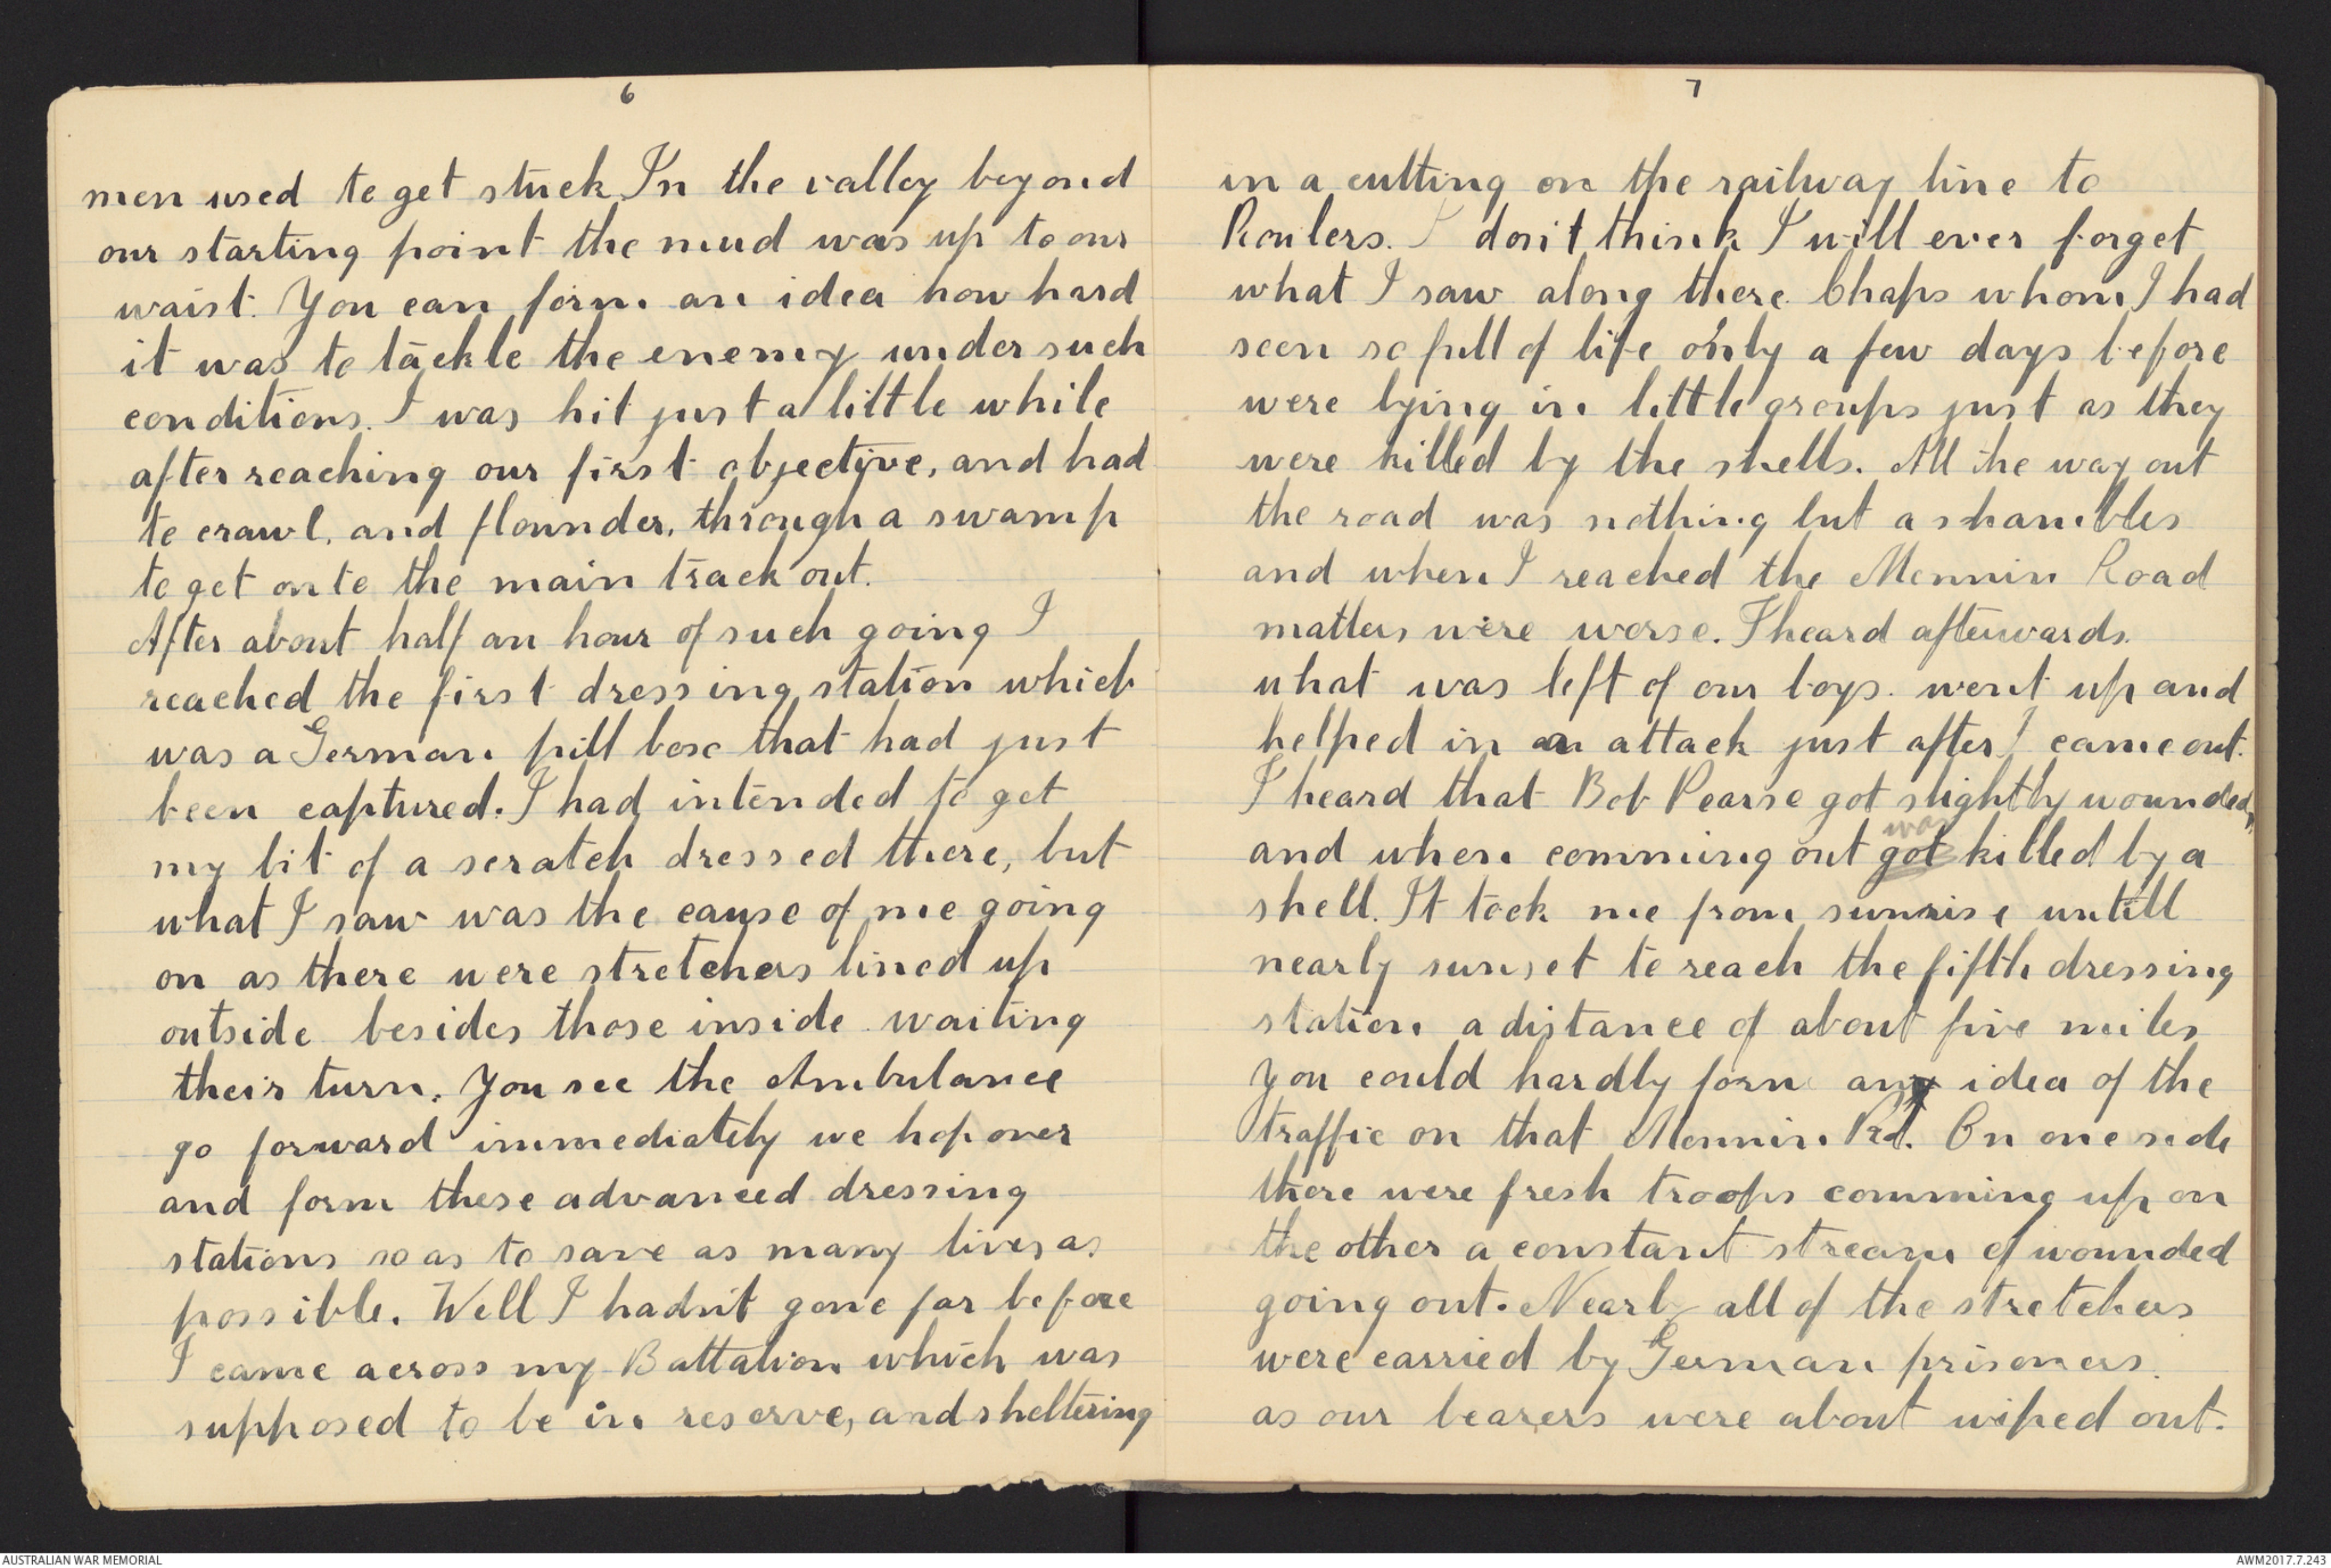 6
men used to get stuck In the valley beyond
our starting point the mud was up to our
waist. You can form an idea how hard
it was to tackle the enemy under such
conditions. I was hit just a little while
after reaching our first objective, and had
to crawl, and flounder, through a swamp
to get on to the main track out.
After about half an hour of such going I
reached the first dressing station which
was a German pill boxe that had just
been captured. I had intended to get
my bit of a scratch dressed there, but
what I saw was the cause of me going
on as there were stretchers lined up
outside besides those inside waiting
their turn. You see the Ambulance
go forward immediately we hop over
and form these advanced dressing
stations so as to save as many lives as
possible. Well I hadn't gone far before
I came across my Battalion which was
supposed to be in reserve, and sheltering
7
in a cutting on the railway line to
Roulers. I don't think I will ever forget
what I saw along there. Chaps whom I had
seen so full of life only a few days before
were lying in little groups just as they
were killed by the shells. All the way out
the road was nothing but a shambles
and when I reached the Mennin Road
matters were worse. I heard afterwards.
what was left of our boys. went up and
helped in an attack just after I came out.
I heard that Bob Pearse got slightly wounded,
was
and when comming out got killed by a
shell. It took me from sunrise untill
nearly sunset to reach the fifth dressing
station a distance of about five miles
You could hardly form any idea of the
traffic on that Mennin Rd. On one side
there were fresh troops comming up on
the other a constant stream of wounded
going out. Nearly all of the stretchers
were carried by German prisoners.
as our bearers were about wiped out.
AUSTRALIAN WAR MEMORIAL
AWM2017.7.243